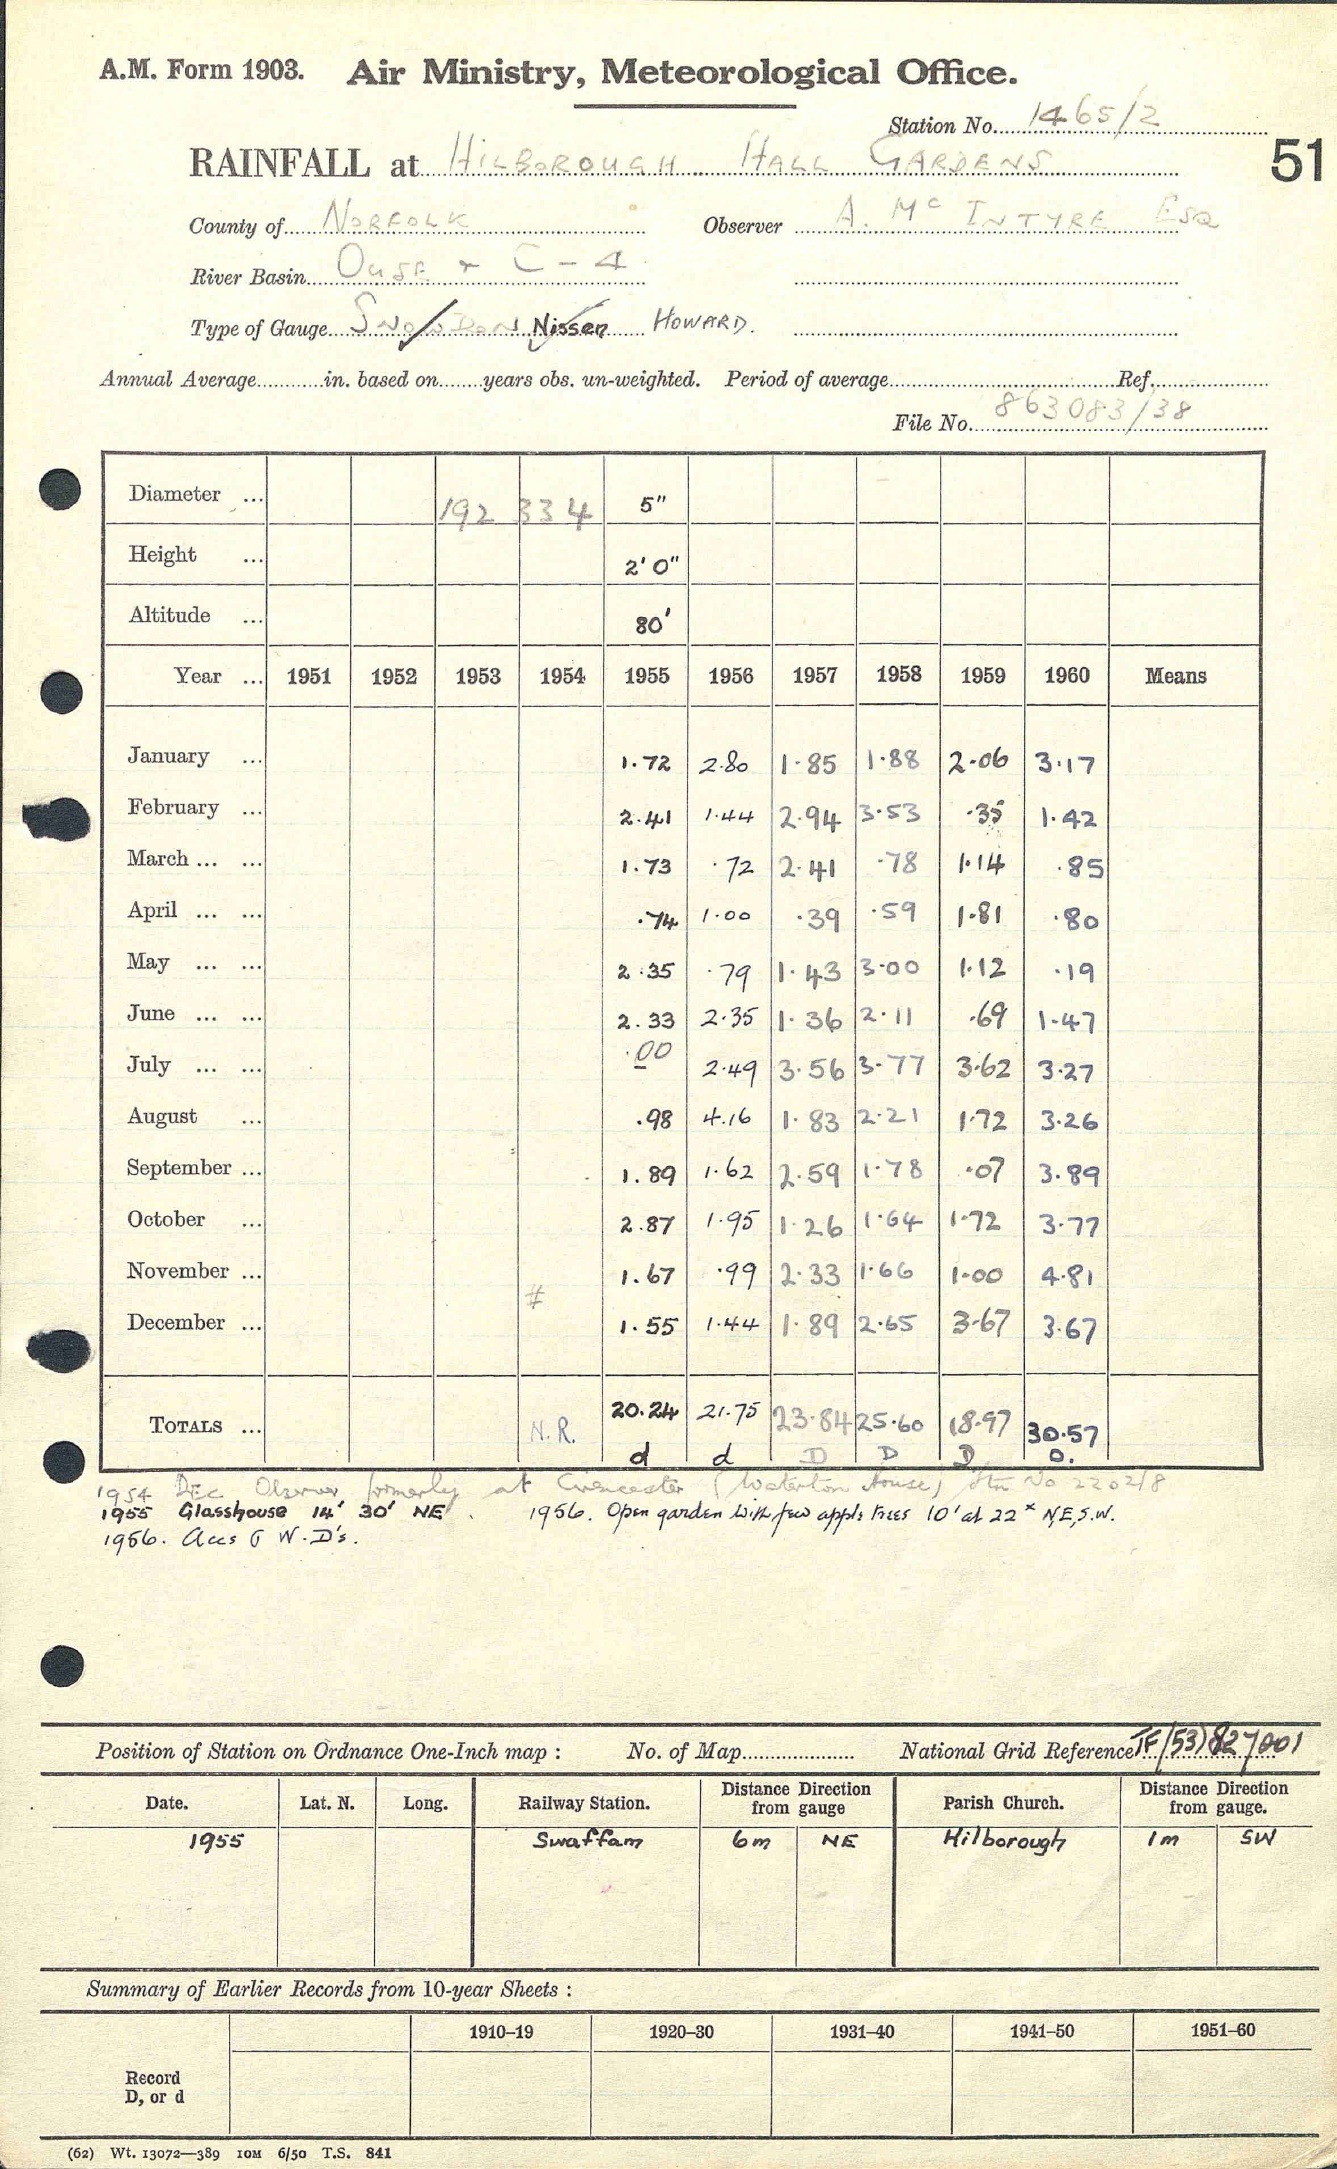 A.M. Form 1903. Air Ministry, Meteorological Office.
Station No. 1465/2
RAINFALL at HILBOROUGH HALL GARDENS 51
County of NORFOLK Observer A. Mc INTYRE ESQ
River Basin OUSE + C-4
Type of Gauge SNOWDON Nissen HOWARD.
Annual Average in. based on years obs. un-weighted. Period of average Ref.
File No. 863083/38
Diameter ... 192 334 5"
Height ... 2' 0"
Altitude ... 80'
Year ... 1951 1952 1953 1954 1955 1956 1957 1958 1959 1960 Means
January ... 1.72 2.80 1.85 1.88 2.06 3.17
February ... 2.41 1.44 2.94 3.53 .35 1.42
March ... ... 1.73 .72 2.41 .78 1.14 .85
April ... ... .74 1.00 .39 .59 1.81 .80
May ... ... 2.35 .79 1.43 3.00 1.12 .19
June ... ... 2.33 2.35 1.36 2.11 .69 1.47
July ... ... .00 2.49 3.56 3.77 3.62 3.27
August ... .98 4.16 1.83 2.21 1.72 3.26
September ... 1.89 1.62 2.59 1.78 .07 3.89
October ... 2.87 1.95 1.26 1.64 1.72 3.77
November ... 1.67 .99 2.33 1.66 1.00 4.81
#
December ... 1.55 1.44 1.89 2.65 3.67 3.67
TOTALS ... N.R. 20.24 21.75 23.84 25.60 18.97 30.57
d d D D D D.
1954 Dec Observer formerly at Cirencester (Waterton House) Stn No 2202/8
1955 Glasshouse 14' 30' NE. 1956. Open garden with few apple trees 10' at 22x N,E,S.W.
1956. Accs W.D's.
Position of Station on Ordnance One-Inch map : No. of Map National Grid Reference TF/(53)827001
Date. Lat. N. Long. Railway Station. Distance Direction from gauge Parish Church. Distance Direction from gauge.
1955 Swaffam 6m NE Hilborough 1m SW
Summary of Earlier Records from 10-year Sheets :
1910–19 1920–30 1931–40 1941–50 1951–60
Record
D, or d
(62) Wt. 13072—389 10M 6/50 T.S. 841